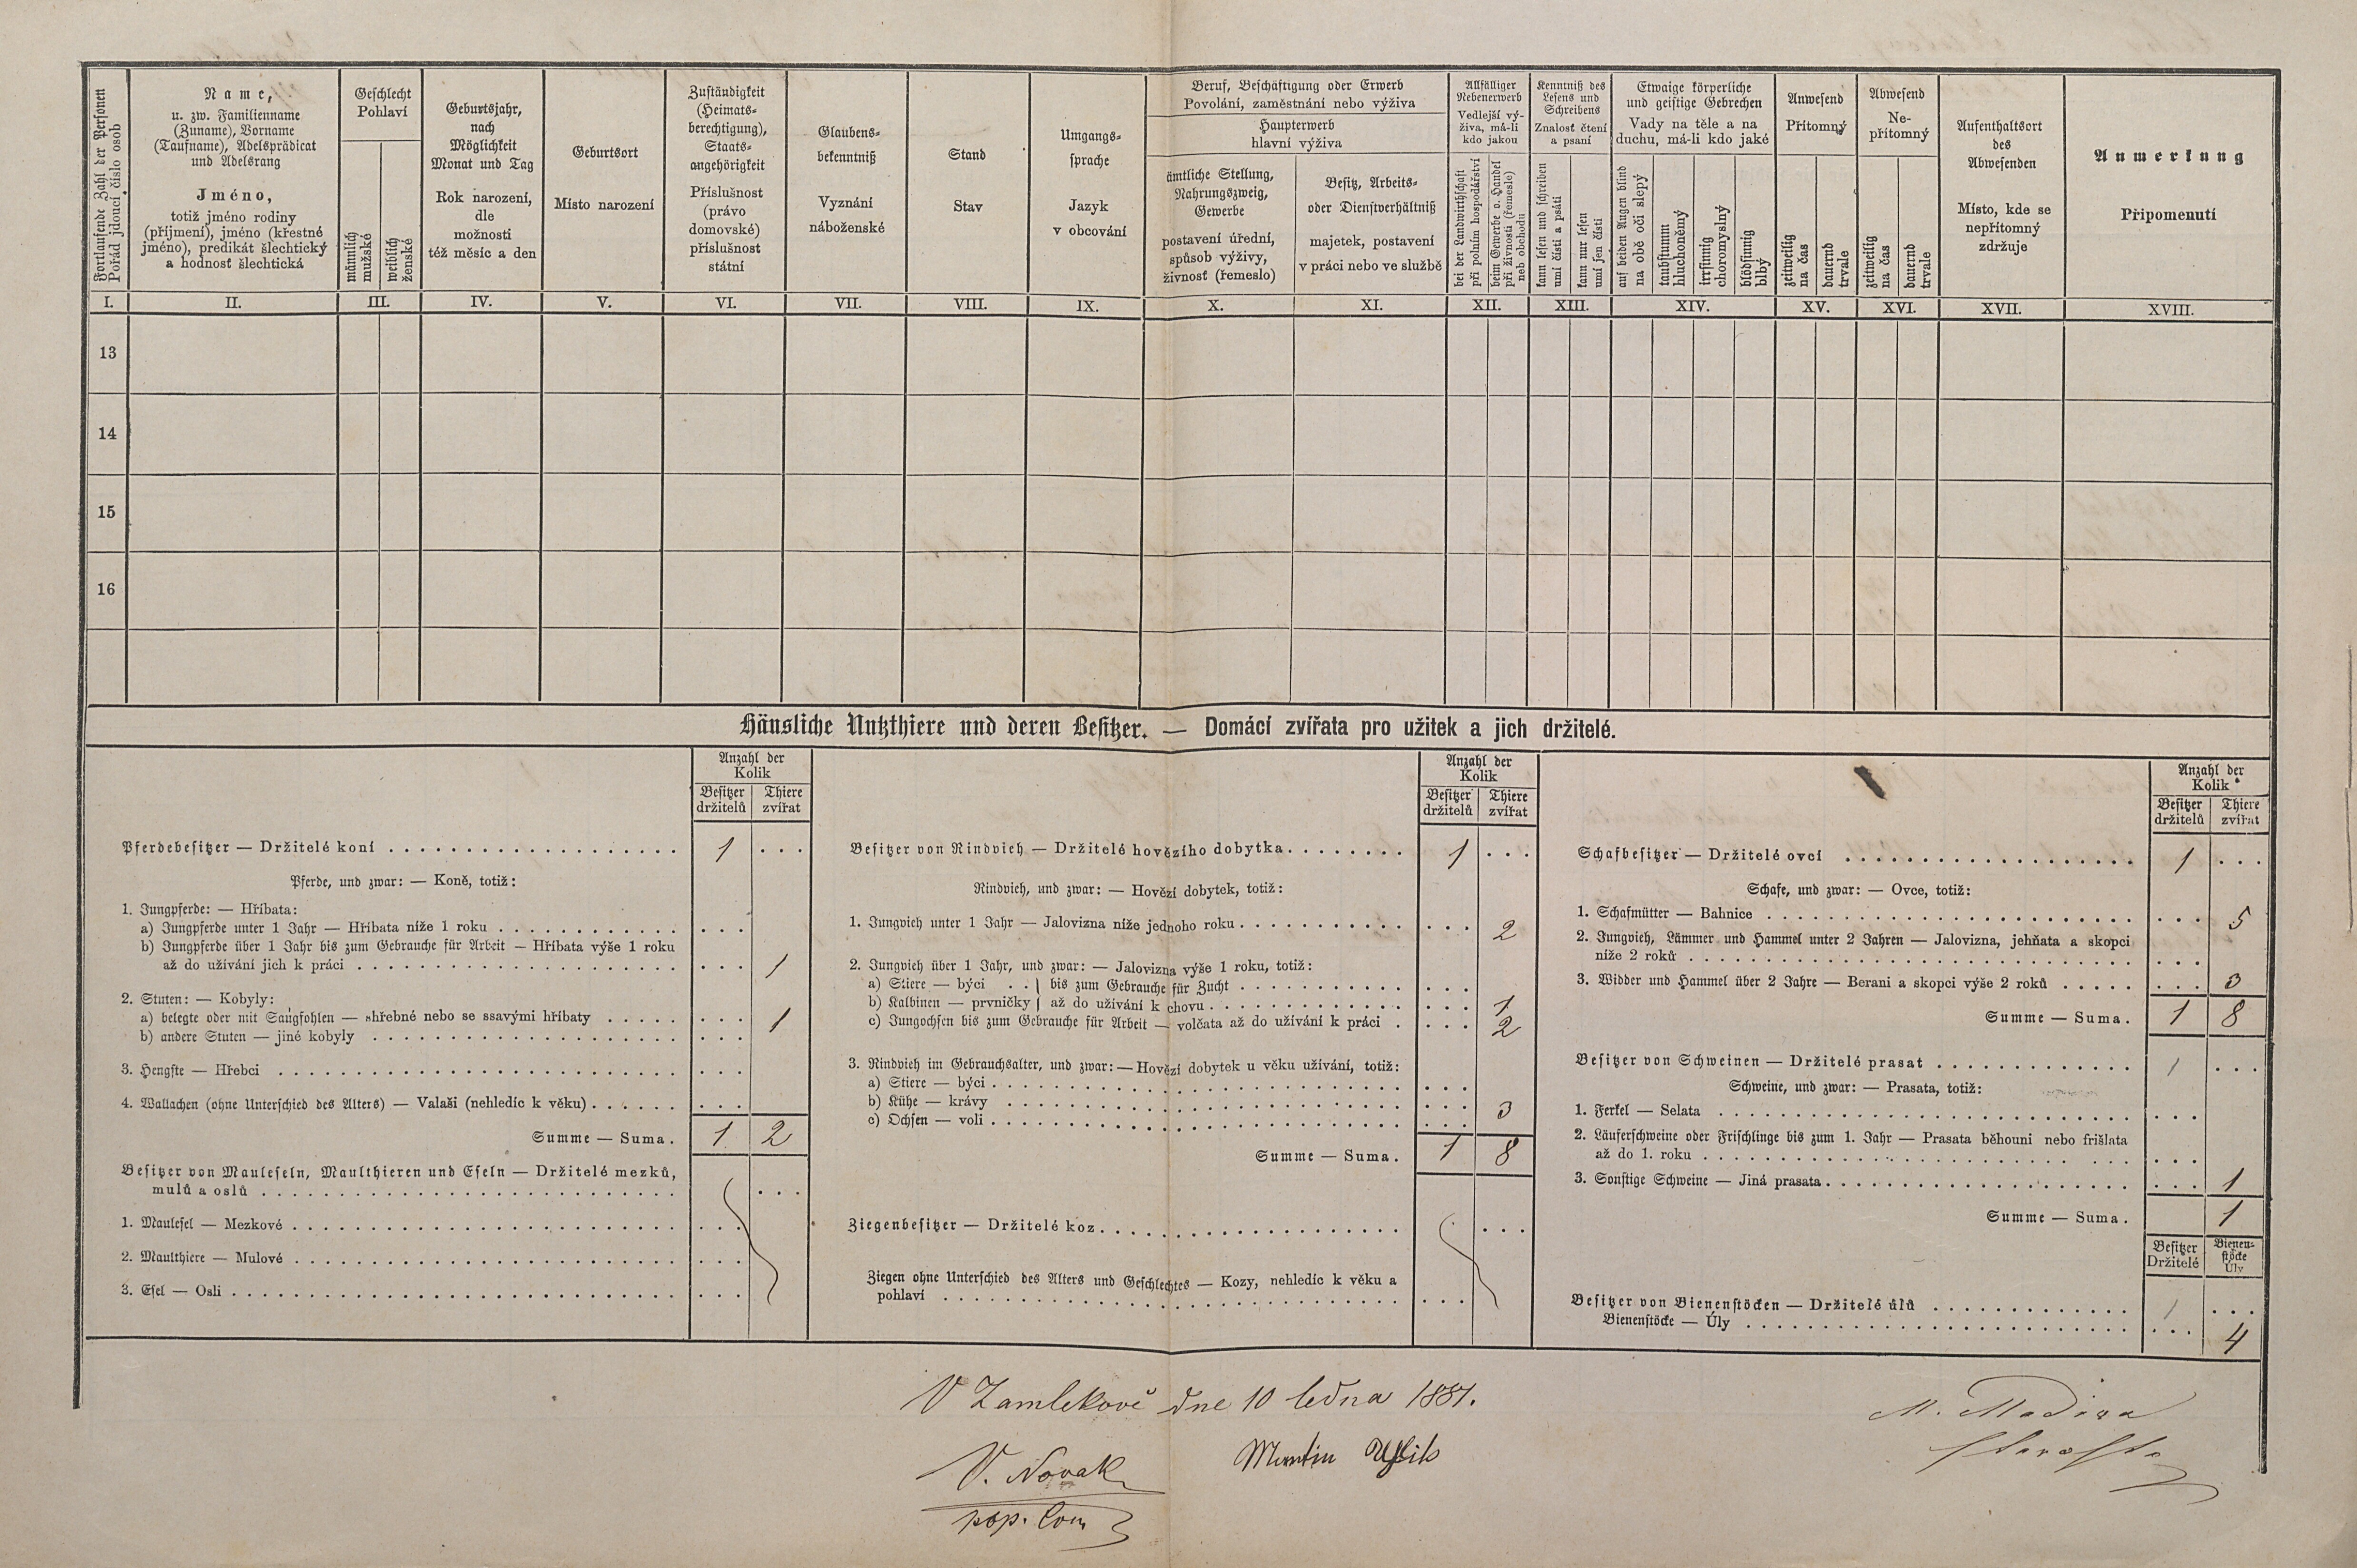 Fortlaufende Zahl der Personen
Pořád jdoucí číslo osob
Name,
u. zw. Familienname
(Zuname), Vorname
(Taufname), Adelsprädicat
und Adelsrang
Jméno,
totiž jméno rodiny
(příjmení), jméno (křestné
jméno), predikát šlechtický
a hodnosť šlechtická
Geschlecht
Pohlaví
männlich
mužské
weiblich
ženské
Geburtsjahr,
nach
Möglichkeit
Monat und Tag
Rok narození,
dle
možnosti
též měsíc a den
Geburtsort
Místo narození
Zuständigkeit
(Heimats-
berechtigung),
Staats-
angehörigkeit
Příslušnost
(právo
domovské)
příslušnost
státní
Glaubens-
bekenntniß
Vyznání
náboženské
Stand
Stav
Umgangs-
sprache
Jazyk
v obcování
Beruf, Beschäftigung oder Erwerb
Povolání, zaměstnání nebo výživa
Haupterwerb
hlavní výživa
ämtliche Stellung,
Nahrungszweig,
Gewerbe
postavení úřední,
spůsob výživy,
živnosť (řemeslo)
Besitz, Arbeits-
oder Dienstverhältniß
majetek, postavení
v práci nebo ve službě
Allfälliger
Nebenerwerb
Vedlejší vý-
živa, má-li
kdo jakou
bei der Landwirthschaft
při polním hospodářství
beim Gewerbe o. Handel
při živnosti (řemesle)
neb obchodu
Kenntniß des
Lesens und
Schreibens
Znalosť čtení
a psaní
kann lesen und schreiben
umí čísti a psáti
kann nur lesen
umí jen čísti
Etwaige körperliche
und geistige Gebrechen
Vady na těle a na
duchu, má-li kdo jaké
auf beiden Augen blind
na obě oči slepý
taubstumm
hluchoněmý
irrsinnig
choromyslný
blödsinnig
blbý
Anwesend
Přítomný
zeitweilig
na čas
dauernd
trvale
Abwesend
Ne-
přítomný
zeitweilig
na čas
dauernd
trvale
Aufenthaltsort
des
Abwesenden
Místo, kde se
nepřítomný
zdržuje
Anmerkung
Připomenutí
I. II. III. IV. V. VI. VII. VIII. IX. X. XI. XII. XIII. XIV. XV. XVI. XVII. XVIII.
13
14
15
16
Häusliche Nutzthiere und deren Besitzer. — Domácí zvířata pro užitek a jich držitelé.
Anzahl der
Kolik
Besitzer Thiere
držitelů zvířat
Pferdebesitzer — Držitelé koní 1
Pferde, und zwar: — Koně, totiž:
1. Jungpferde: — Hříbata:
a) Jungpferde unter 1 Jahr — Hříbata níže 1 roku
b) Jungpferde über 1 Jahr bis zum Gebrauche für Arbeit — Hříbata výše 1 roku
až do užívání jich k práci 1
2. Stuten: — Kobyly:
a) belegte oder mit Saugfohlen — shřebné nebo se ssavými hříbaty 1
b) andere Stuten — jiné kobyly
3. Hengste — Hřebci
4. Wallachen (ohne Unterschied des Alters) — Valaši (nehledíc k věku)
Summe — Suma. 1 2
Besitzer von Mauleseln, Maulthieren und Eseln — Držitelé mezků,
mulů a oslů
1. Maulesel — Mezkové
2. Maulthiere — Mulové
3. Esel — Osli
Anzahl der
Kolik
Besitzer Thiere
držitelů zvířat
Besitzer von Rindvieh — Držitelé hovězího dobytka 1
Rindvieh, und zwar: — Hovězí dobytek, totiž:
1. Jungvieh unter 1 Jahr — Jalovizna níže jednoho roku 2
2. Jungvieh über 1 Jahr, und zwar: — Jalovizna výše 1 roku, totiž:
a) Stiere — býci . . } bis zum Gebrauche für Zucht
b) Kalbinen — prvničky } až do užívání k chovu 1
c) Jungochsen bis zum Gebrauche für Arbeit — volčata až do užívání k práci 2
3. Rindvieh im Gebrauchsalter, und zwar: — Hovězí dobytek u věku užívání, totiž:
a) Stiere — býci
b) Kühe — krávy 3
c) Ochsen — voli
Summe — Suma. 1 8
Ziegenbesitzer — Držitelé koz
Ziegen ohne Unterschied des Alters und Geschlechtes — Kozy, nehledíc k věku a
pohlaví
Anzahl der
Kolik
Besitzer Thiere
držitelů zvířat
Schafbesitzer — Držitelé ovcí 1
Schafe, und zwar: — Ovce, totiž:
1. Schafmütter — Bahnice 5
2. Jungvieh, Lämmer und Hammel unter 2 Jahren — Jalovizna, jehňata a skopci
níže 2 roků
3. Widder und Hammel über 2 Jahre — Berani a skopci výše 2 roků 3
Summe — Suma. 1 8
Besitzer von Schweinen — Držitelé prasat 1
Schweine, und zwar: — Prasata, totiž:
1. Ferkel — Selata
2. Läuferschweine oder Frischlinge bis zum 1. Jahr — Prasata běhouni nebo frišlata
až do 1. roku
3. Sonstige Schweine — Jiná prasata 1
Summe — Suma. 1
Besitzer Bienen-
stöcke
Držitelé Úly
Besitzer von Bienenstöcken — Držitelé úlů 1
Bienenstöcke — Úly 4
V Zamlekově dne 10 ledna 1881.
V. Novak
pop. Com
Martin
M. Madira
starosta